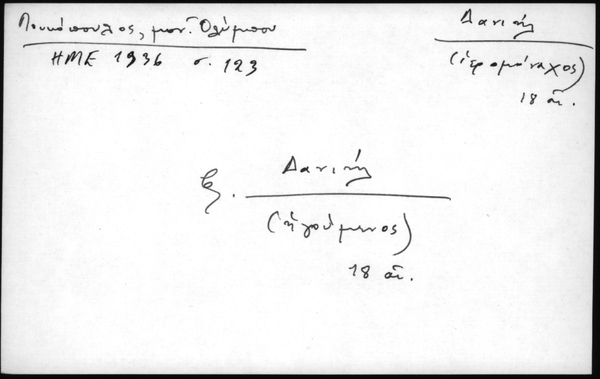 Λουκόπουλος, μον. Ὀλύμπου
ΗΜΕ 1936 σ. 123
Δανιήλ
(ἱερομόναχος)
18 αἰ.
Δανιήλ
(ἡγούμενος)
18 αἰ.